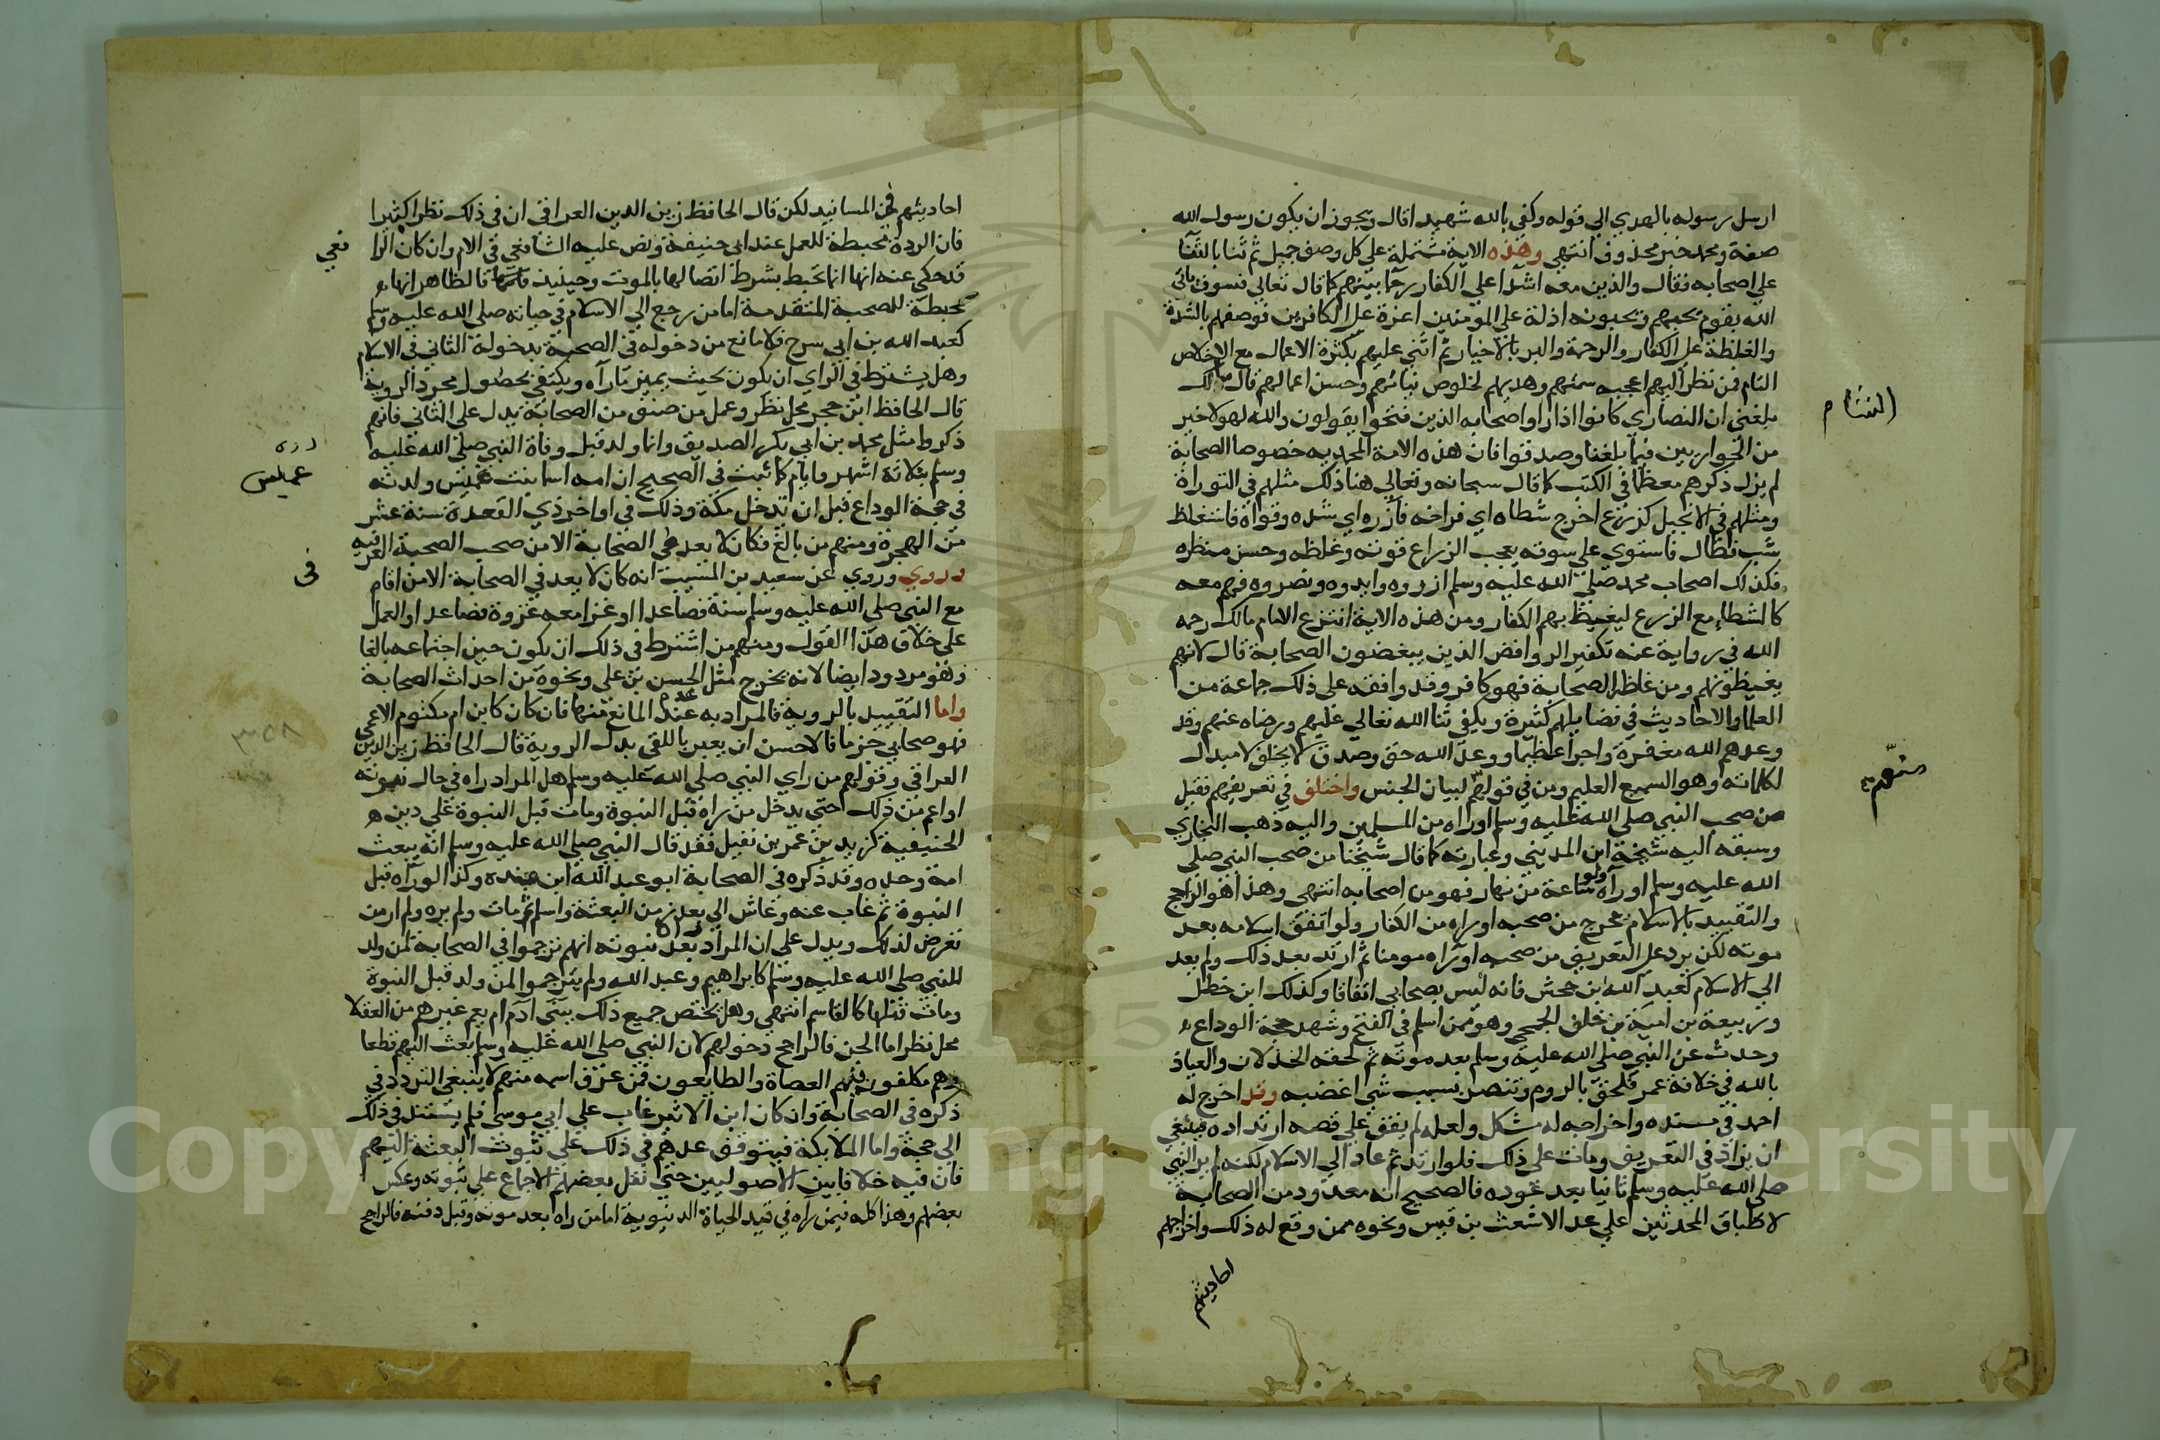 ارسل رسوله بالهدي الي قوله وكفي بالله شهيدا قال ويجوز ان يكون رسول الله
صفة ومحمد خبر محذوف انتهي وهذه الاية مشتملة علي كل وصف جميل ثم ثنا بالثنا
علي اصحابه فقال والذين معه اشدا علي الكفار رحما بينهم كما قال تعالي فسوف ياتي
الله بقوم يحبهم ويحبونه اذلة علي المومنين اعزة علي الكافرين فوصفهم بالشدة
والغلظة علي الكفار والرحمة والبر بالاخيار ثم اثني عليهم بكثرة الاعمال مع الاخلاص
التام فمن نظر اليهم اعجبه سمتهم وهديهم لخلوص نياتهم وحسن اعمالهم قال مالك
بلغني ان النصاري كانوا اذا راوا صحابه الذين فتحوا يقولون والله لهولا خير
الشام
من الحواريين فيما بلغنا وصدقوا فان هذه الامة المحمدية خصوصا الصحابة
لم يزل ذكرهم معظما في الكتب كما قال سبحانه وتعالي هنا ذلك مثلهم في التوراة
ومثلهم في الانجيل كزرع اخرج شطاه اي فراخه فازره اي شده وقواه فاستغلظ
شب فطال فاستوي علي سوقه يعجب الزراع قوته وغلظه وحسن منظره
فكذلك اصحاب محمد صلي الله عليه وسلم ازروه وايدوه ونصروه فهم معه
كالشطاء مع الزرع ليغيظ بهم الكفار ومن هذه الاية انتزع الامام مالك رحمه
الله في رواية عنه تكفير الروافض الذين يبغضون الصحابة قال لانهم
يغيظونهم ومن غاظ الصحابة فهو كافر وقد وافقه علي ذلك جماعة من
العلما والاحاديث في فضايلهم كثيرة ويكفي ثنا الله تعالي عليهم ورضاه عنهم وقد
وعدهم الله مغفرة واجرا عظيما ووعد الله حق وصدق لا يخلف لا مبدل
لكلماته وهو السميع العليم ومن في قولهم لبيان الجنس واختلف في تعريفهم فقيل
منهم
من صحب النبي صلي الله عليه وسلم او راه من المسلمين واليه ذهب البخاري
وسبقه اليه شيخه ابن المديني وعبارته كما قال شيخنا من صحب النبي صلي
الله عليه وسلم او رآه ولو ساعة من نهار فهو من اصحابه انتهي وهذا هو الراجح
والتقييد بالاسلام يخرج من صحبه او راه من الكفار ولو اتفق اسلامه بعد
موته لكن يرد علي التعريف من صحبه او رآه مومنا ثم ارتد بعد ذلك ولم يعد
الي الاسلام كعبيد الله بن جحش فانه ليس بصحابي اتفاقا وكذلك ابن خطل
وربيعة بن امية بن خلف الجمحي وهو ممن اسلم في الفتح وشهد حجة الوداع
وحدث عن النبي صلي الله عليه وسلم بعد موته ثم لحقه الخذلان والعياذ
بالله في خلافة عمر فلحق بالروم وتنصر بسبب شي اغضبه وقد اخرج له
احمد في مسنده واخراجه له مشكل ولعله لم يقف علي قصه ارتداده فينبغي
ان يزاد في التعريف ومات علي ذلك فلو ارتد ثم عاد الي الاسلام لكنه لم ير النبي
صلي الله عليه وسلم ثانيا بعد عوده فالصحيح انه معدود من الصحابة
لاطباق المحدثين علي عد الاشعث بن قيس ونحوه ممن وقع له ذلك واخراجهم
احاديثهم
احاديثهم في المسانيد لكن قال الحافظ زين الدين العراقي ان في ذلك نظرا كثيرا
فان الردة محبطة للعمل عند ابي حنيفة ونص عليه الشافعي في الام وان كان الرا
فعي
قد حكي عنه انها انما تحبط بشرط اتصالها بالموت وحينيذ فالظاهر انها
محبطة للصحبة المتقدمة اما من رجع الي الاسلام في حياته صلي الله عليه وسلم
كعبد الله بن ابي سرح فلا مانع من دخوله في الصحبة بدخوله الثاني في الاسلام
وهل يشترط في الراي ان يكون بحيث يميز ما رآه ويكتفي بحصول مجرد الروية
قال الحافظ ابن حجر محل نظر وعمل من صنف من الصحابة يدل علي الثاني فانهم
ذكروا مثل محمد بن ابي بكر الصديق وانما ولد قبل وفاة النبي صلي الله عليه
وسلم بثلاثة اشهر وايام كما ثبت في الصحيح ان امه اسما بنت عميس ولدته
عميس
في حجة الوداع قبل ان تدخل مكة وذلك في اواخر ذي القعدة سنة عشر
من الهجرة ومنهم من بالغ فكان لا يعد في الصحابة الا من صحب الصحبة العرفيه
وروي وروي عن سعيد بن المسيب انه كان لا يعد في الصحابة الا من اقام
في
مع النبي صلي الله عليه وسلم سنة فصاعدا او غزا معه غزوة فصاعدا والعمل
علي خلاف هذا القول ومنهم من اشترط في ذلك ان يكون حين اجتماعه بالغا
وهو مردود ايضا لانه يخرج مثل الحسن بن علي ونحوه من احداث الصحابة
واما التقييد بالروية فالمراد به عند عدم المانع منها فان كان كابن ام مكتوم الاعمي
فهو صحابي جزما فالاحسن ان يعبر باللقي بدل الروية قال الحافظ زين الدين
٣٥٨
العراقي وقولهم من راي النبي صلي الله عليه وسلم هل المراد راه في حال نبوته
او اعم من ذلك حتي يدخل من راه قبل النبوة ومات قبل النبوة علي دين
الحنيفية كزيد بن عمر بن نفيل فقد قال النبي صلي الله عليه وسلم انه يبعث
امة وحده وقد ذكره في الصحابة ابو عبد الله ابن منده وكذا لو رآه قبل
النبوة ثم غاب عنه وعاش الي بعد زمن البعثة واسلم ثم مات ولم يره ولم ار من
تعرض لذلك ويدل علي ان المراد رآه بعد نبوته انهم ترجموا في الصحابة لمن ولد
للنبي صلي الله عليه وسلم كابراهيم وعبد الله ولم يترجموا لمن ولد قبل النبوة
ومات قبلها كالقاسم انتهي وهل يختص جميع ذلك ببني آدم ام يعم غيرهم من العقلا
محل نظر اما الجن فالراجح دخولهم لان النبي صلي الله عليه وسلم بعث اليهم قطعا
وهم مكلفون فيهم العصاة والطايعون فمن عرف اسمه منهم لا ينبغي التردد في
ذكره في الصحابة وان كان ابن الاثير عاب علي ابي موسي فلم يستند في ذلك
الي حجة واما الملايكة فيتوقف عدهم في ذلك علي ثبوت البعثة اليهم
فان فيه خلافا بين الاصوليين حتي نقل بعضهم الاجماع علي ثبوته وعكس
بعضهم وهذا كله فيمن راه في قيد الحياة الدنيوية اما من راه بعد موته وقبل دفنه فالراجح
Copyright © King Saud University
195